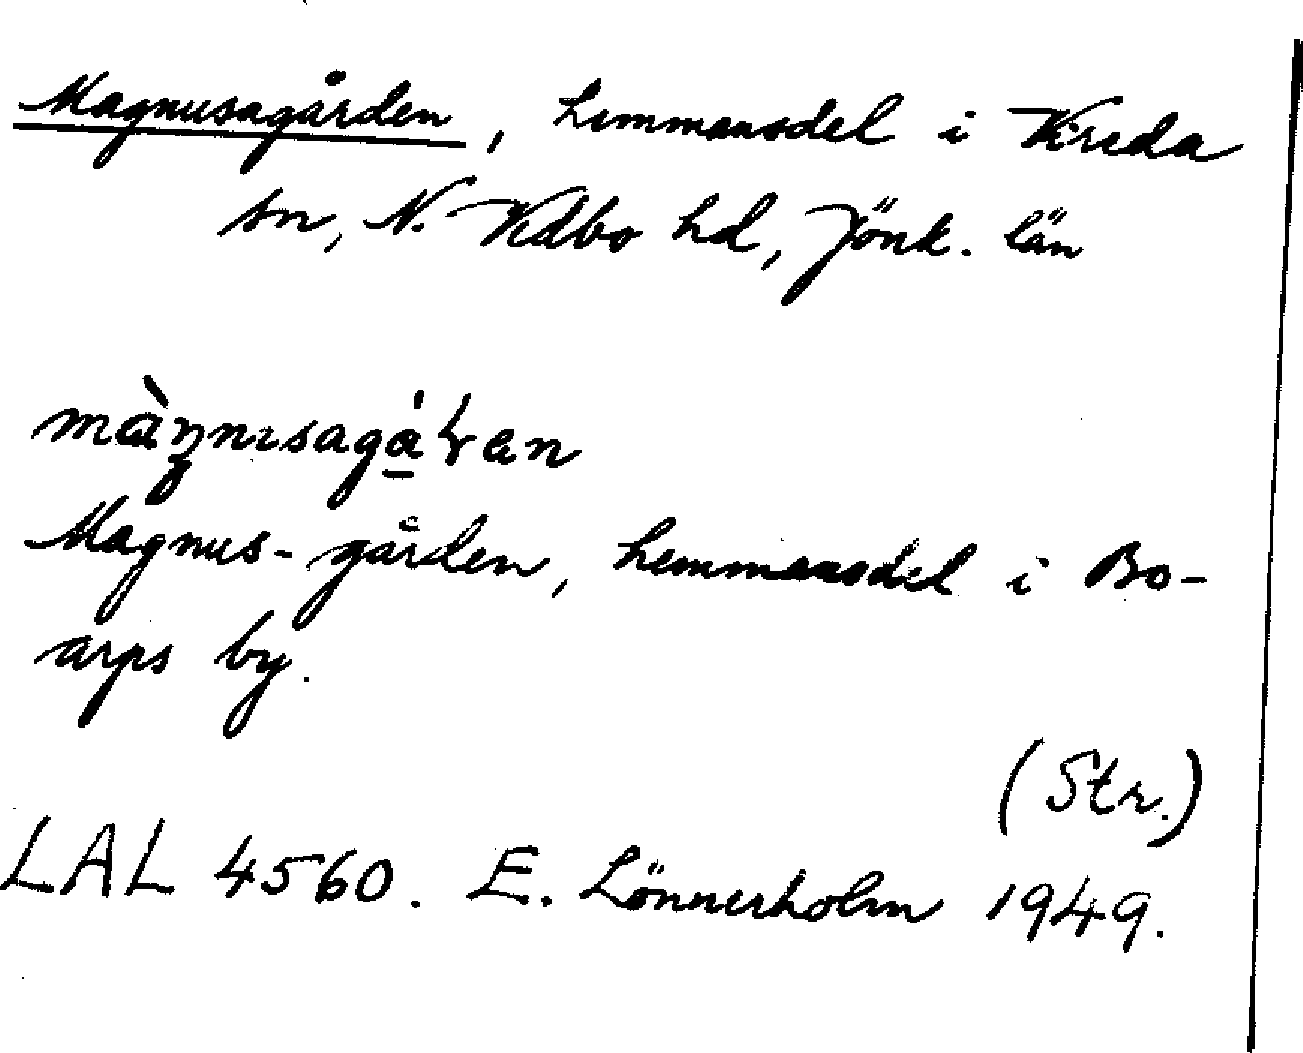 Magnusagården, hemmansdel i Vireda
sn, N. Vedbo hd, Jönk. län
Magnus-gården, hemmansdel i Bo-
arps by.
(Str.)
LAL 4560. E. Lönnerholm 1949.